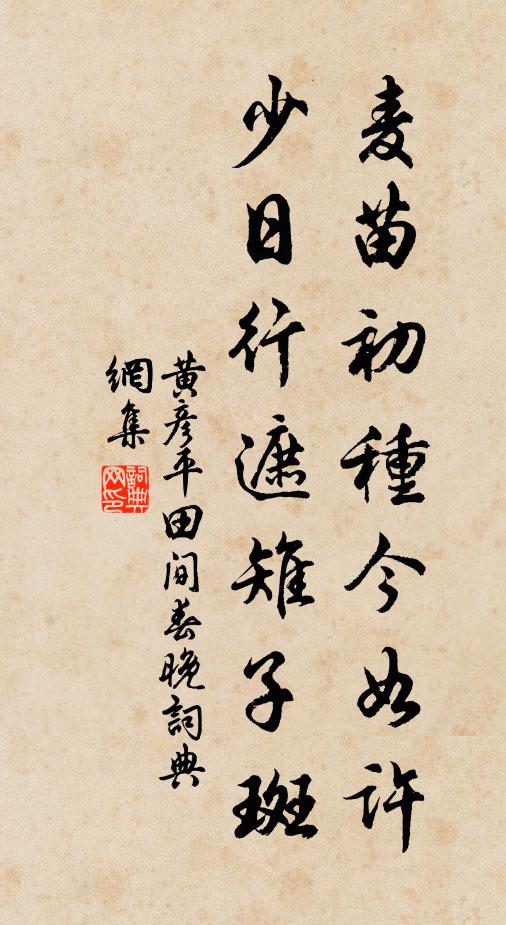 麦苗初種今如許
少日行遮雉子斑
黄彦平田间春晚詞典
網集
詞典
网印